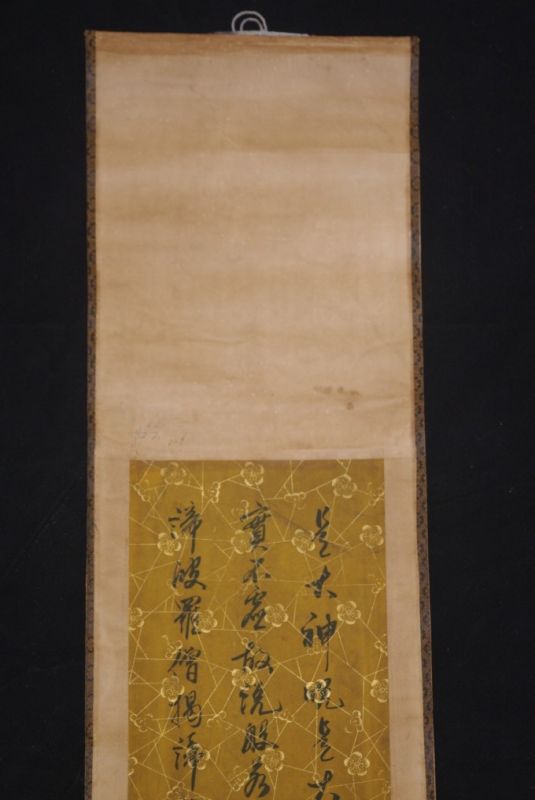 是大神咒是大
實不虛故說般若
諦波羅僧揭諦